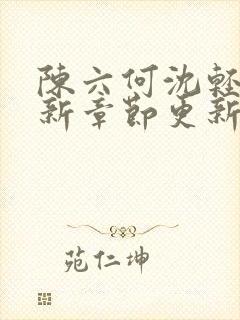 陳六何沈輕
新章節更新
苑仁坤